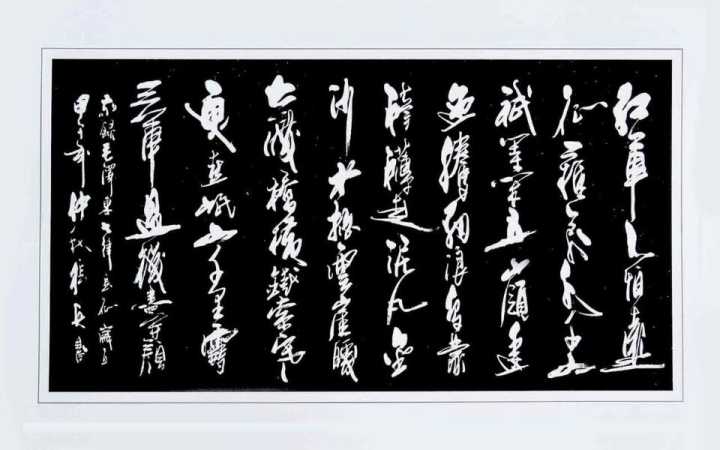 紅軍不怕遠
征難萬水千山
祇等閒五嶺逶
迤騰細浪烏蒙
磅礴走泥丸金
沙水拍雲崖暖
大渡橋橫鐵索寒
更喜岷山千里雪
三軍過後盡開顏
錄毛澤東七律長征